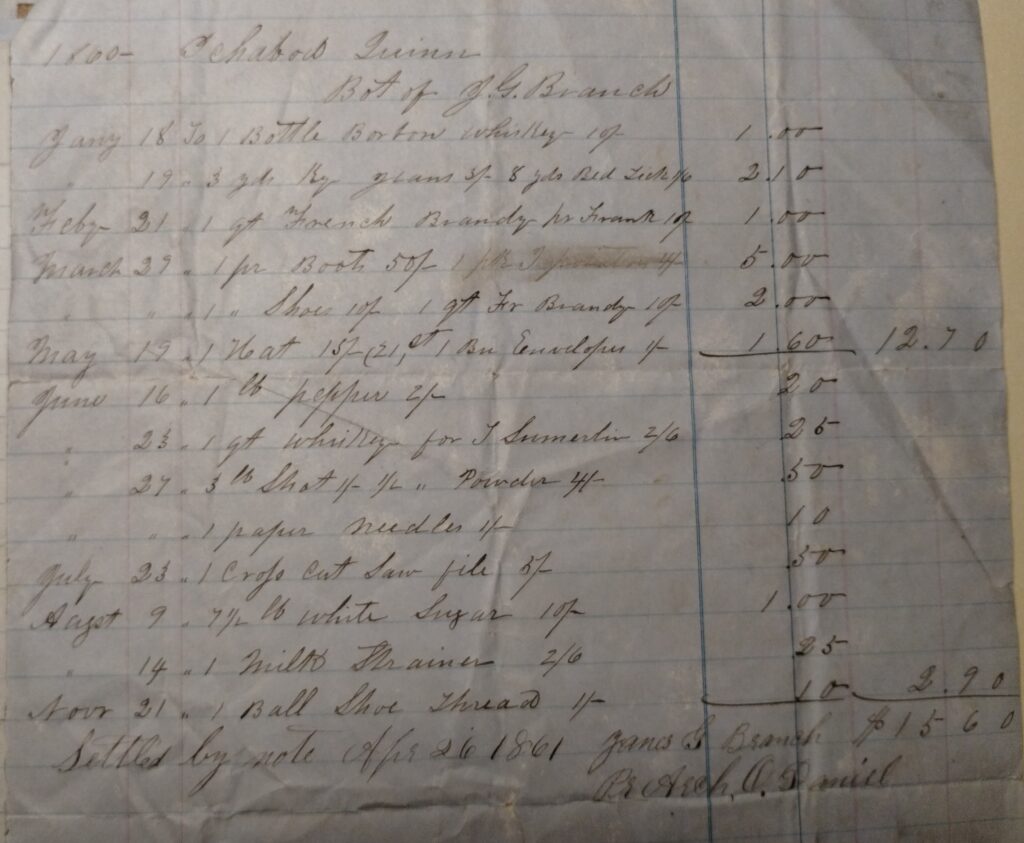 1860 Ichabod Quinn
Bot of J. G. Branch
Jany 18 To 1 Bottle Borbon Whiskey 10/ 1.00
" 19 " 3 yds Ky jeans 3/- 8 yds Bed Tick 2.10
Feby 21 " 1 qt French Brandy pr Frank 10/ 1.00
March 29 " 1 pr Boots 50/- 5.00
" " " 1 " Shoes 10/ 1 qt Fr Brandy 10/ 2.00
May 19 " 1 Hat 15/- (21st 1 Bn Envelopes 1/- 1.60 12.70
June 16 " 1 lb pepper 2/- 20
" 23 " 1 qt whiskey for J Sumerlin 2/6 25
" 27 " 3 lb Shot 1/- 1/2 " Powder 4/- .50
" " " 1 paper needles 1/- 10
July 23 " 1 Cross Cut Saw file 5/- .50
Augst 9 " 7 1/2 lb white Sugar 10/- 1.00
" 14 " 1 Milk Strainer 2/6 25
Novr 21 " 1 Ball Shoe Thread 1/- 10 2.90
Settled by note Apr 26 1861 James G Branch $15 60
Pr Arch. O. Daniel